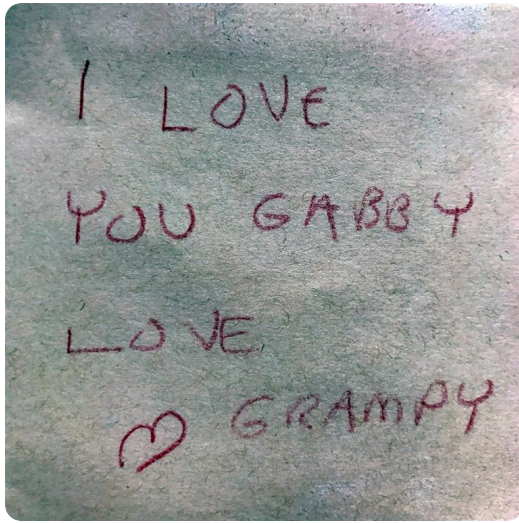 I LOVE
YOU GABBY
LOVE
♡ GRAMPY